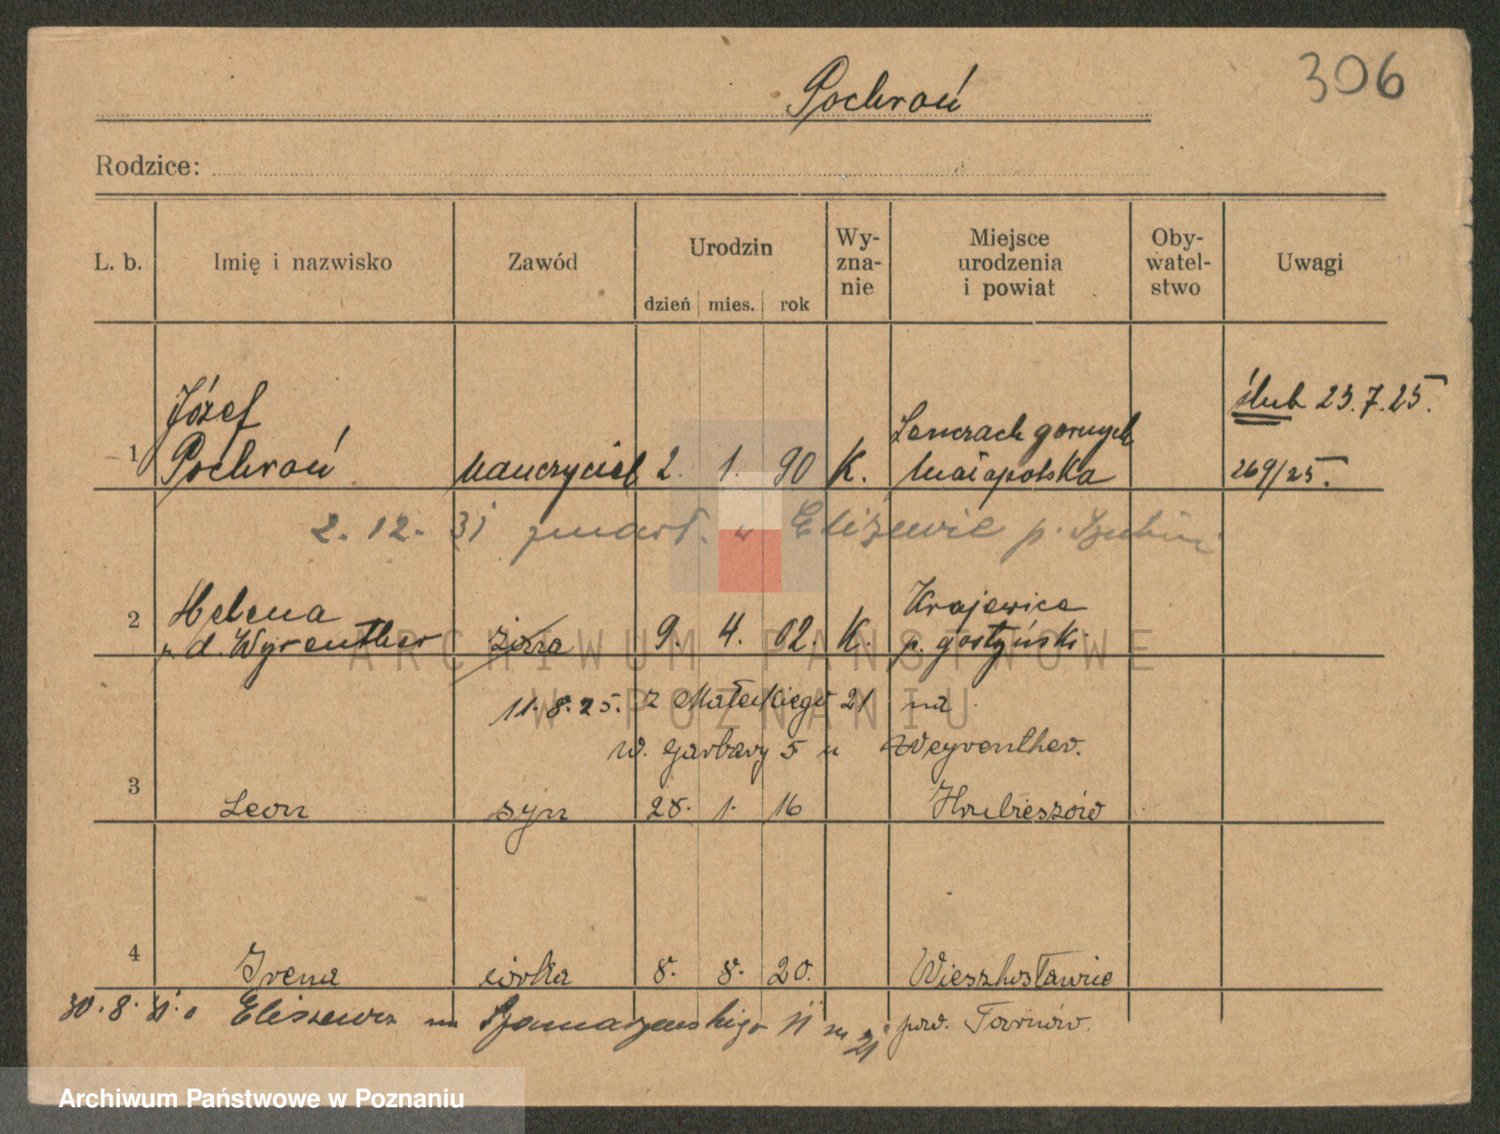 306
Pochroń
Rodzice:
L. b. Imię i nazwisko Zawód Urodzin dzień mies. rok Wy-zna-nie Miejsce urodzenia i powiat Oby-watel-stwo Uwagi
ślub 23.7.25.
Józef
1 Pochroń nauczyciel 2. 1. 90 K. górnych Małopolska 269/25.
2. 12. 31 zmarł. w Elizewie p. Szubin
Helena Krajewice
2 d. Wyrenther żona 9. 4. 02. K. p. gostyński
11.8.25. z Małeckiego 21 na
W. Garbary 5 u Weyrenther.
3 Leon syn 28. 1. 16 Hrubieszów
4 Irena córka 8. 8. 20. Wierzchosławice
30.8. pow. Tarnów.
ARCHIWUM PAŃSTWOWE
W POZNANIU
Archiwum Państwowe w Poznaniu